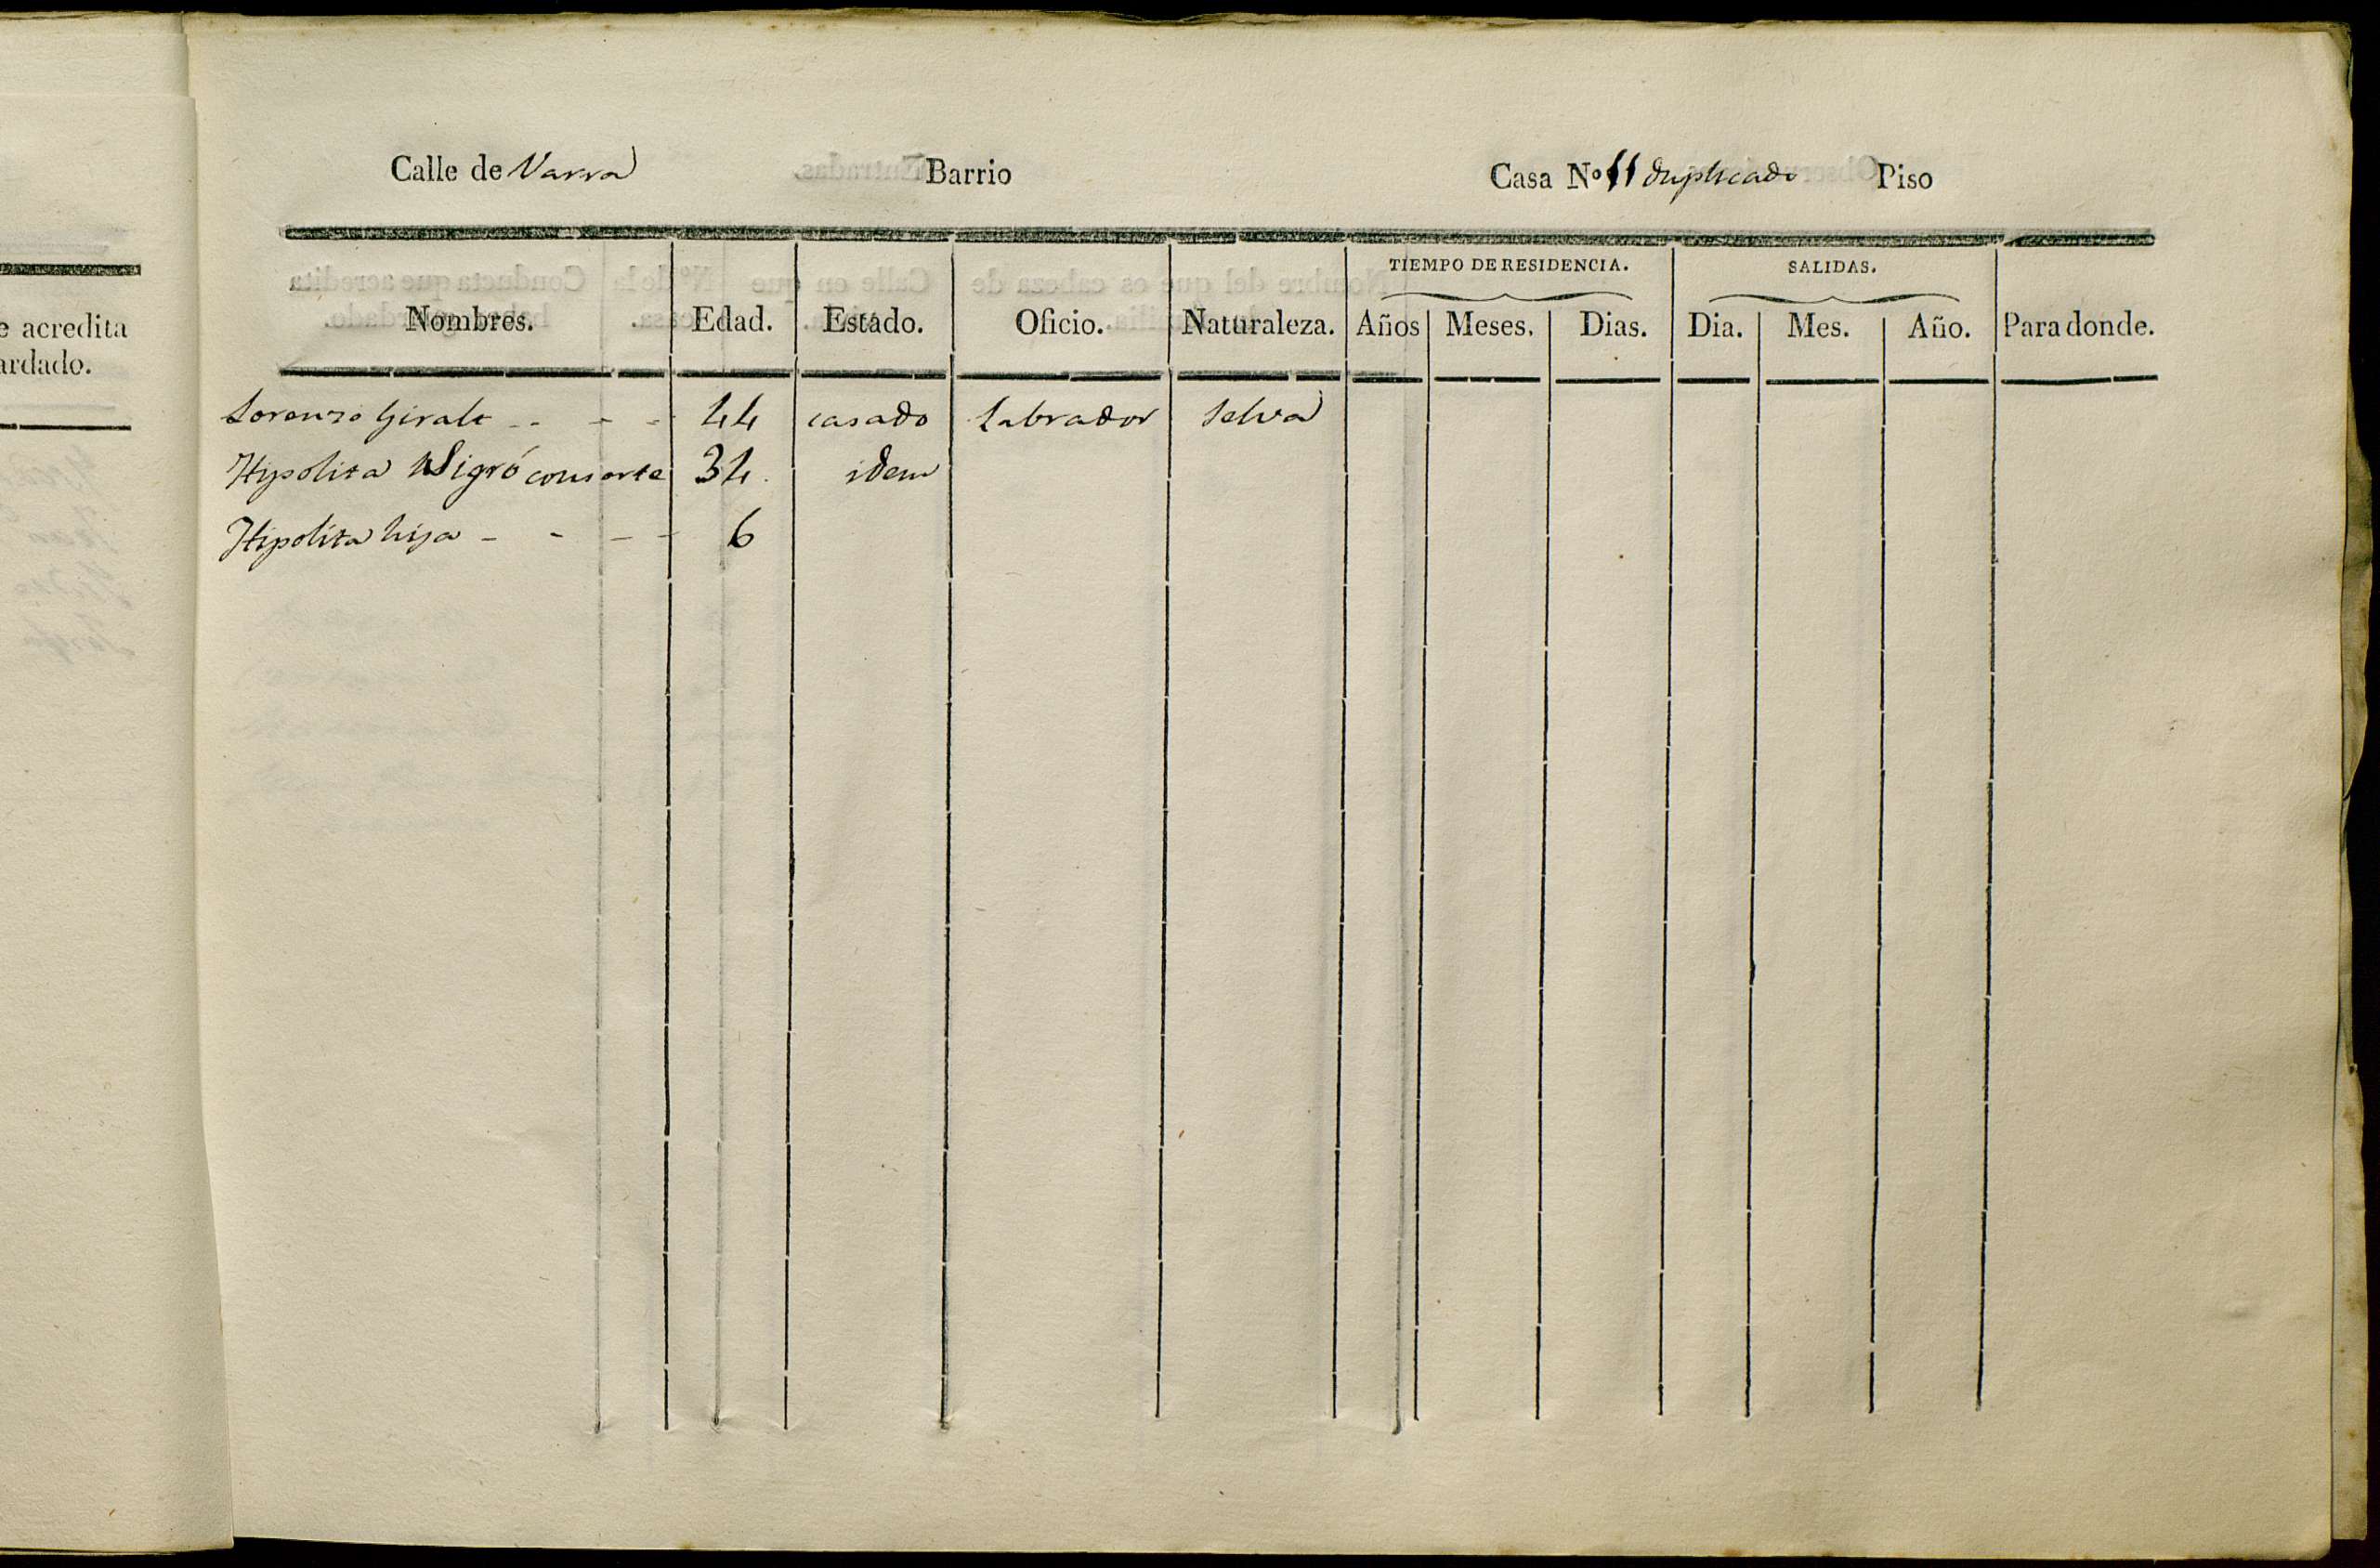 e acredita
ardado.
Calle de Varra Barrio Casa Nº 11 duplicado Piso
TIEMPO DE RESIDENCIA. SALIDAS.
Nombres. Edad. Estado. Oficio. Naturaleza. Años Meses. Dias. Dia. Mes. Año. Para donde.
Lorenzo Giralt - - - 44 casado Labrador Selva
Hipolita Sigró consorte 34. idem
Hipolita hija - - - - 6